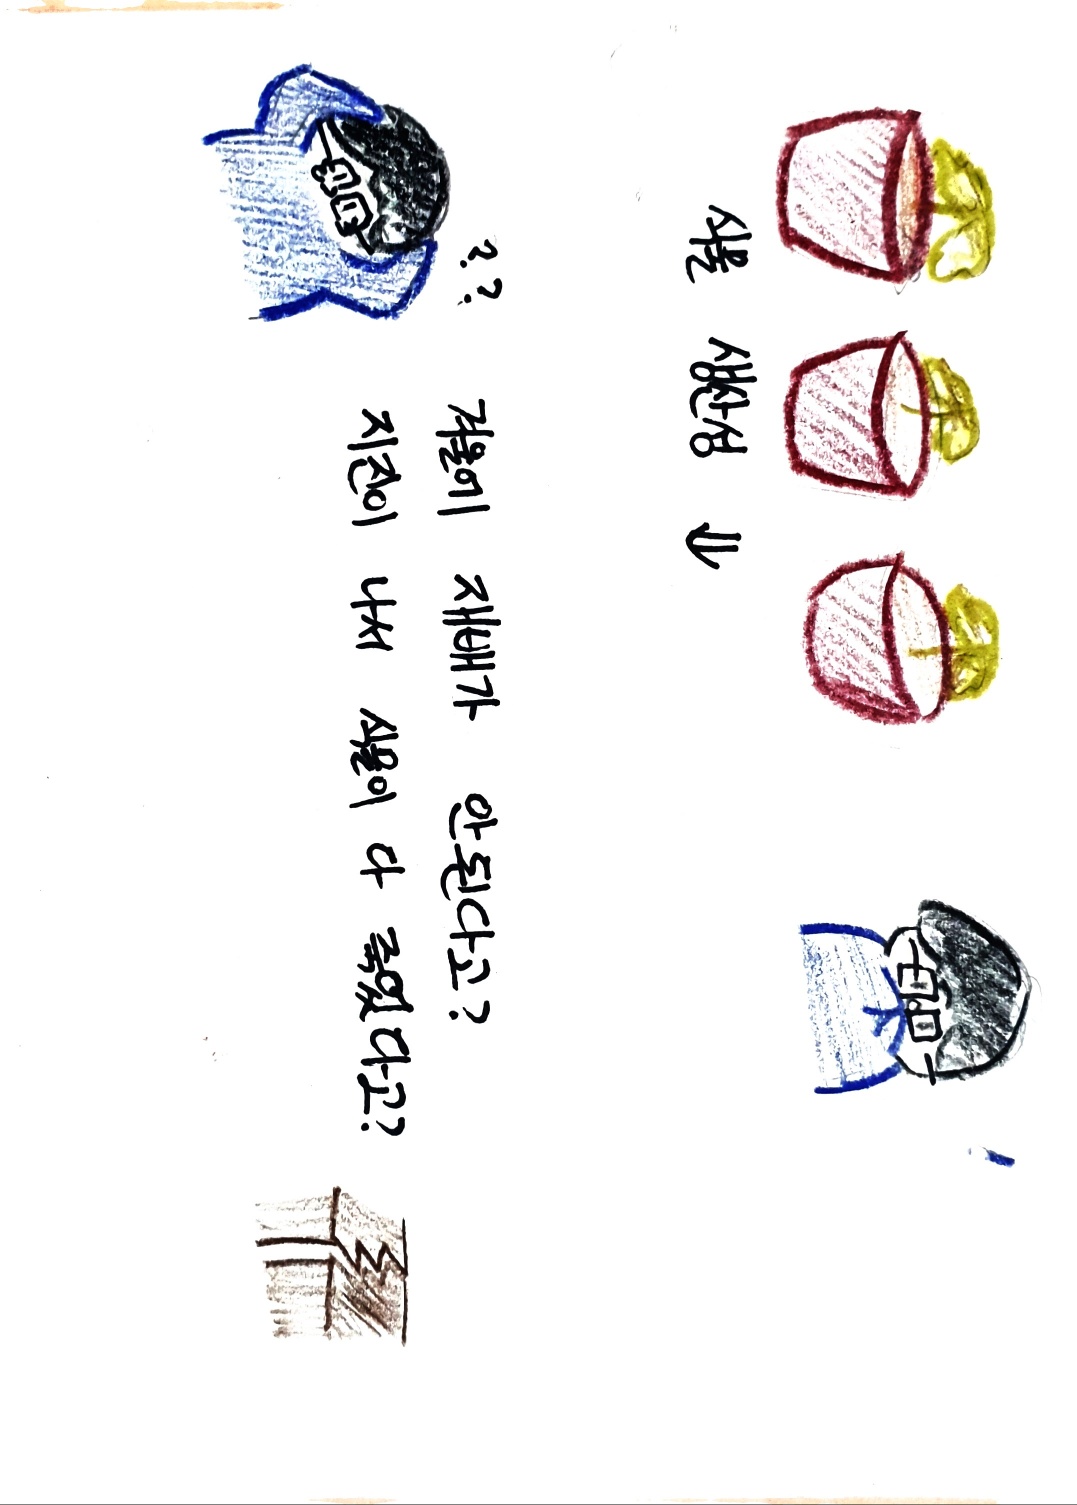 식물 생산성 ⇓
??
겨울에 재배가 안된다고?
지진이 나서 식물이 다 죽었다고?